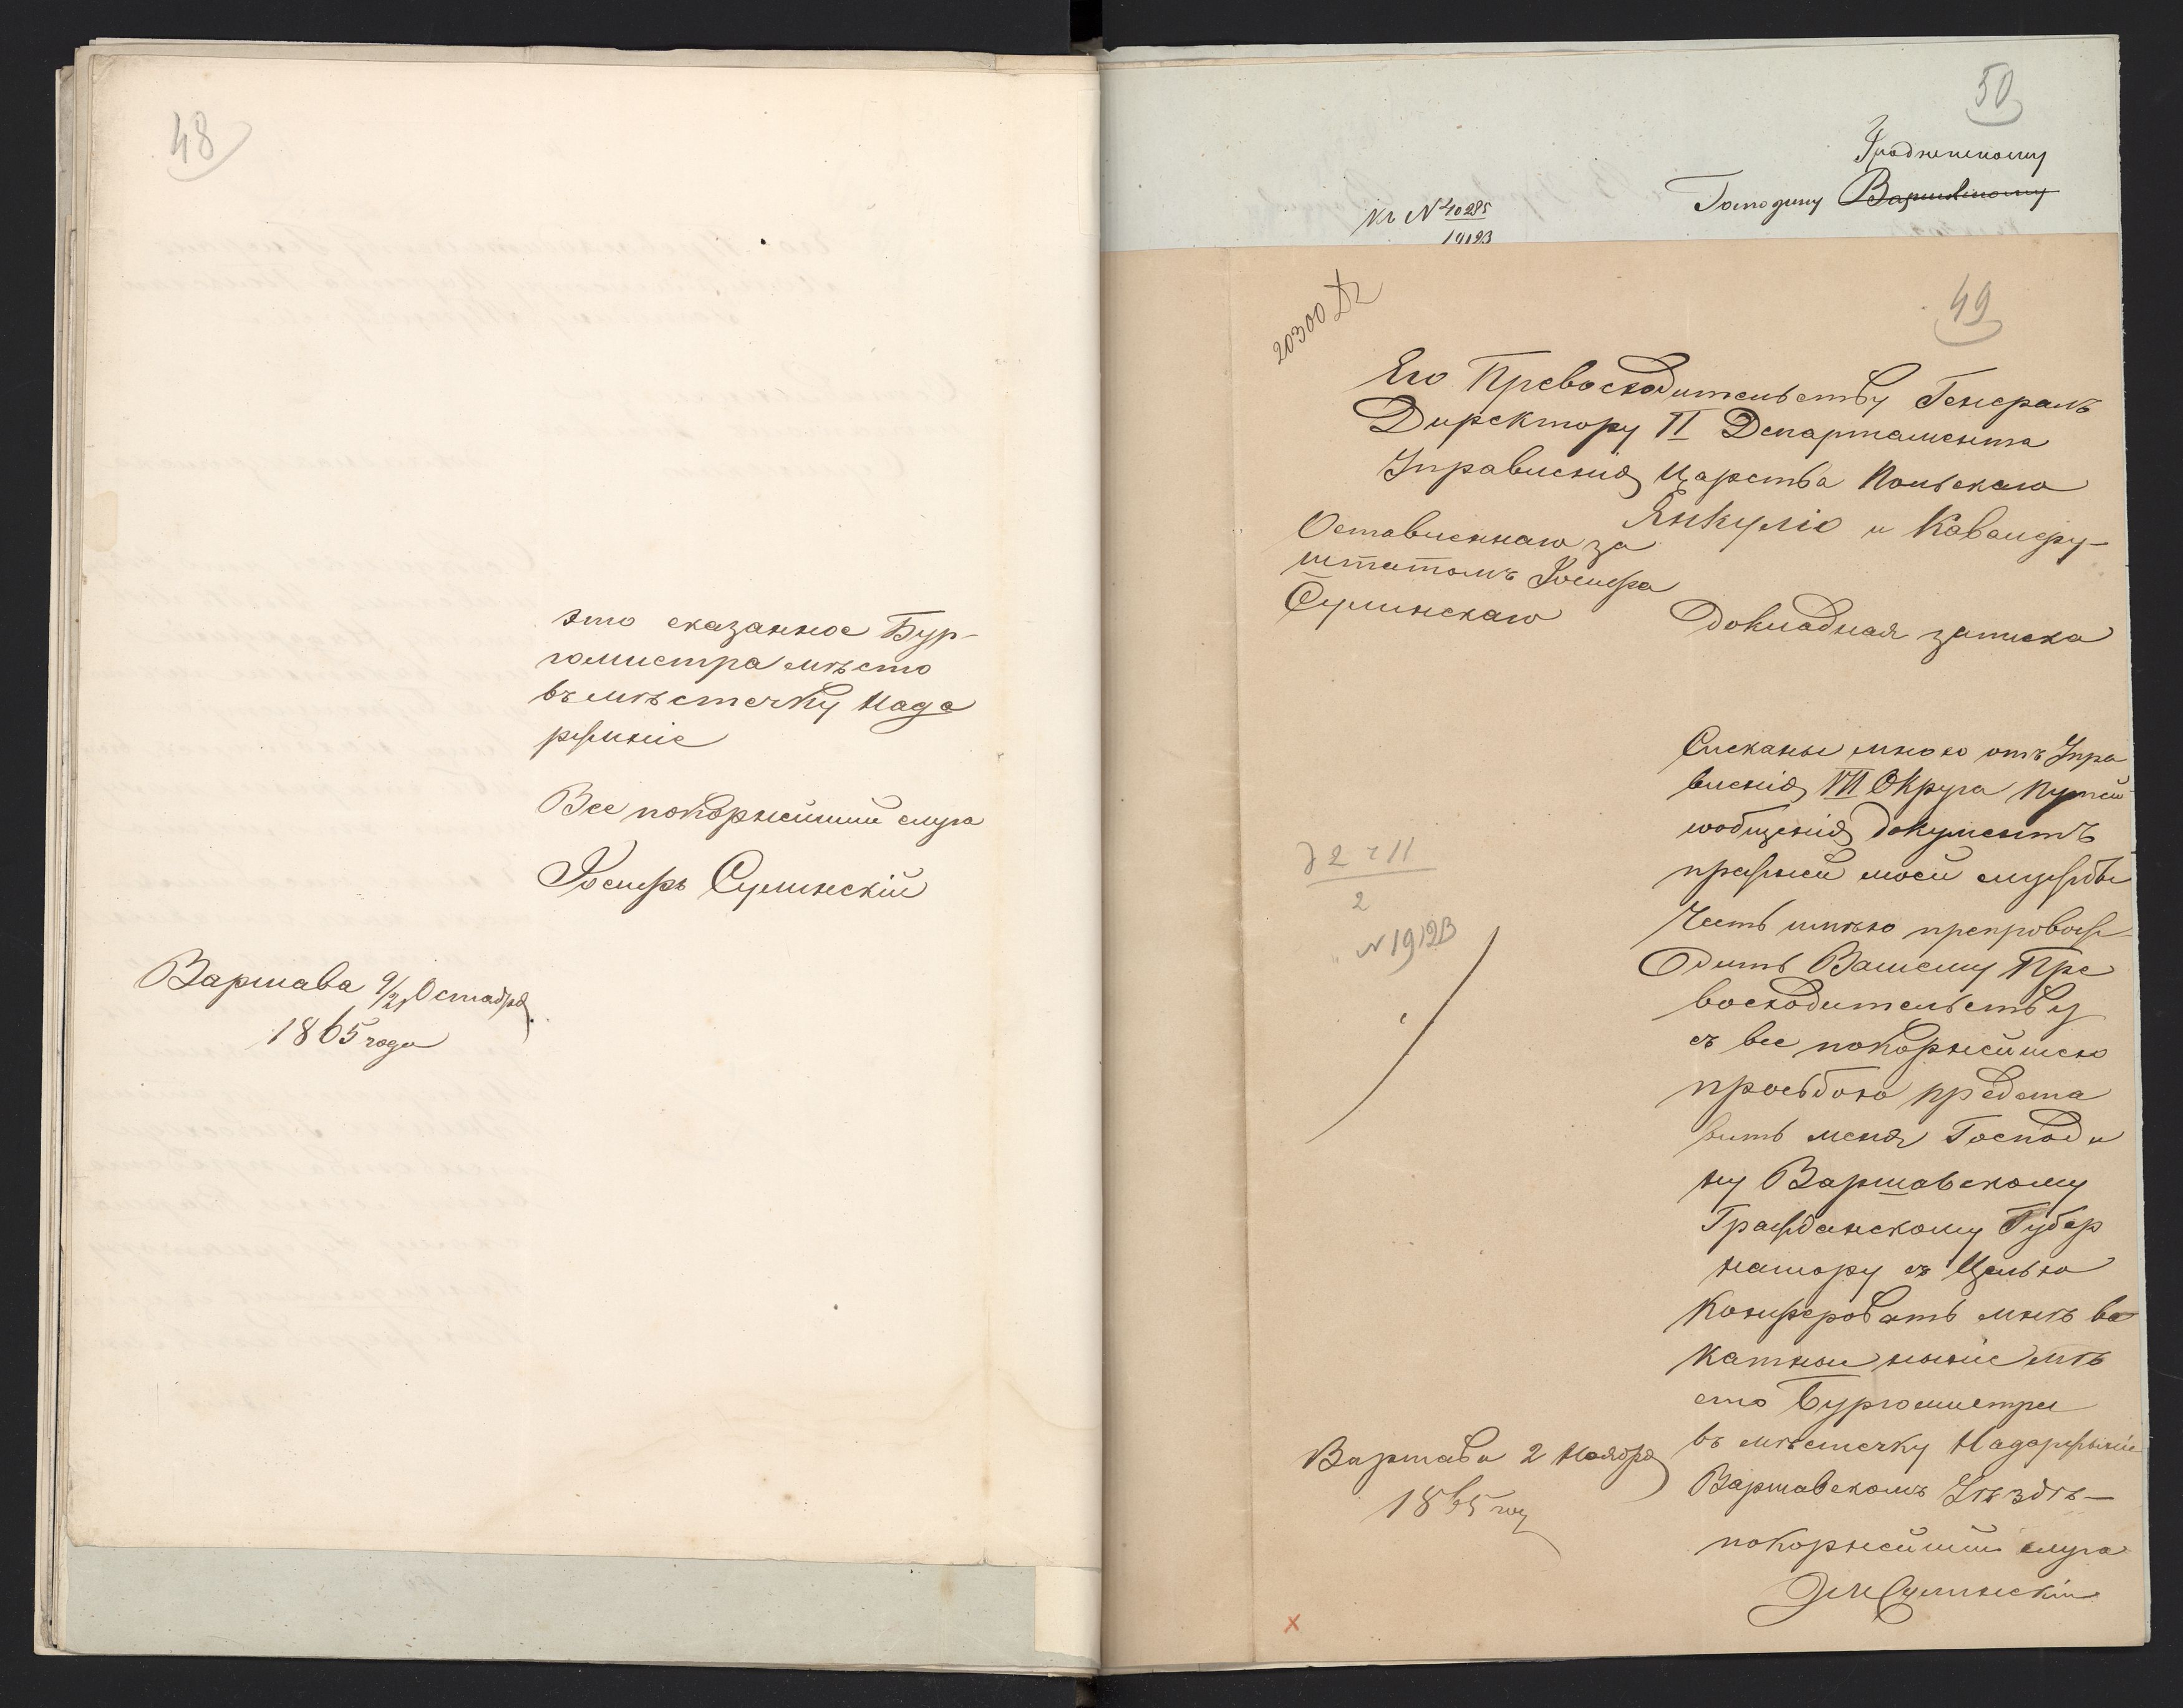 48
это сказанное Бур-
гомистра место
въ местечку Нада
ржиніе
Все покорнейшии слуга
Іосифъ Сулинскій
Варшава 9/21 Остабря
1865 года
50
Гродненскому
Господину Варшавскому
Къ № 40285
19123
49
20300
Его Превосходительству Генералъ
Директору II Департамента
Управленія Царства Польскаго
Янкуліо и Кавалеру-
Оставленнаго за
штатомъ Іосифа
Сулинскаго
Докладная записка
Сисканы мною отъ Упра
вленія VII Округа Путей
сообщенія документъ
прежней моей службы
Честь имѣю препровож-
дить Вашему Пре
восходительству
съ все покорнейшею
просьбою предста
вить меня Господи
ну Варшавскому
Гражданскому Губер
натору съ Целью
Конферовать мнѣ ва
катное ныніе мѣ
сто Бургомистра
въ мѣстечку Надаржиніе
Варшавскомъ Уѣздѣ-
покорнейшии слуга
Сулинскій
2 ч 11
2
N 19123
Варшава 2 Ноября
1865 году